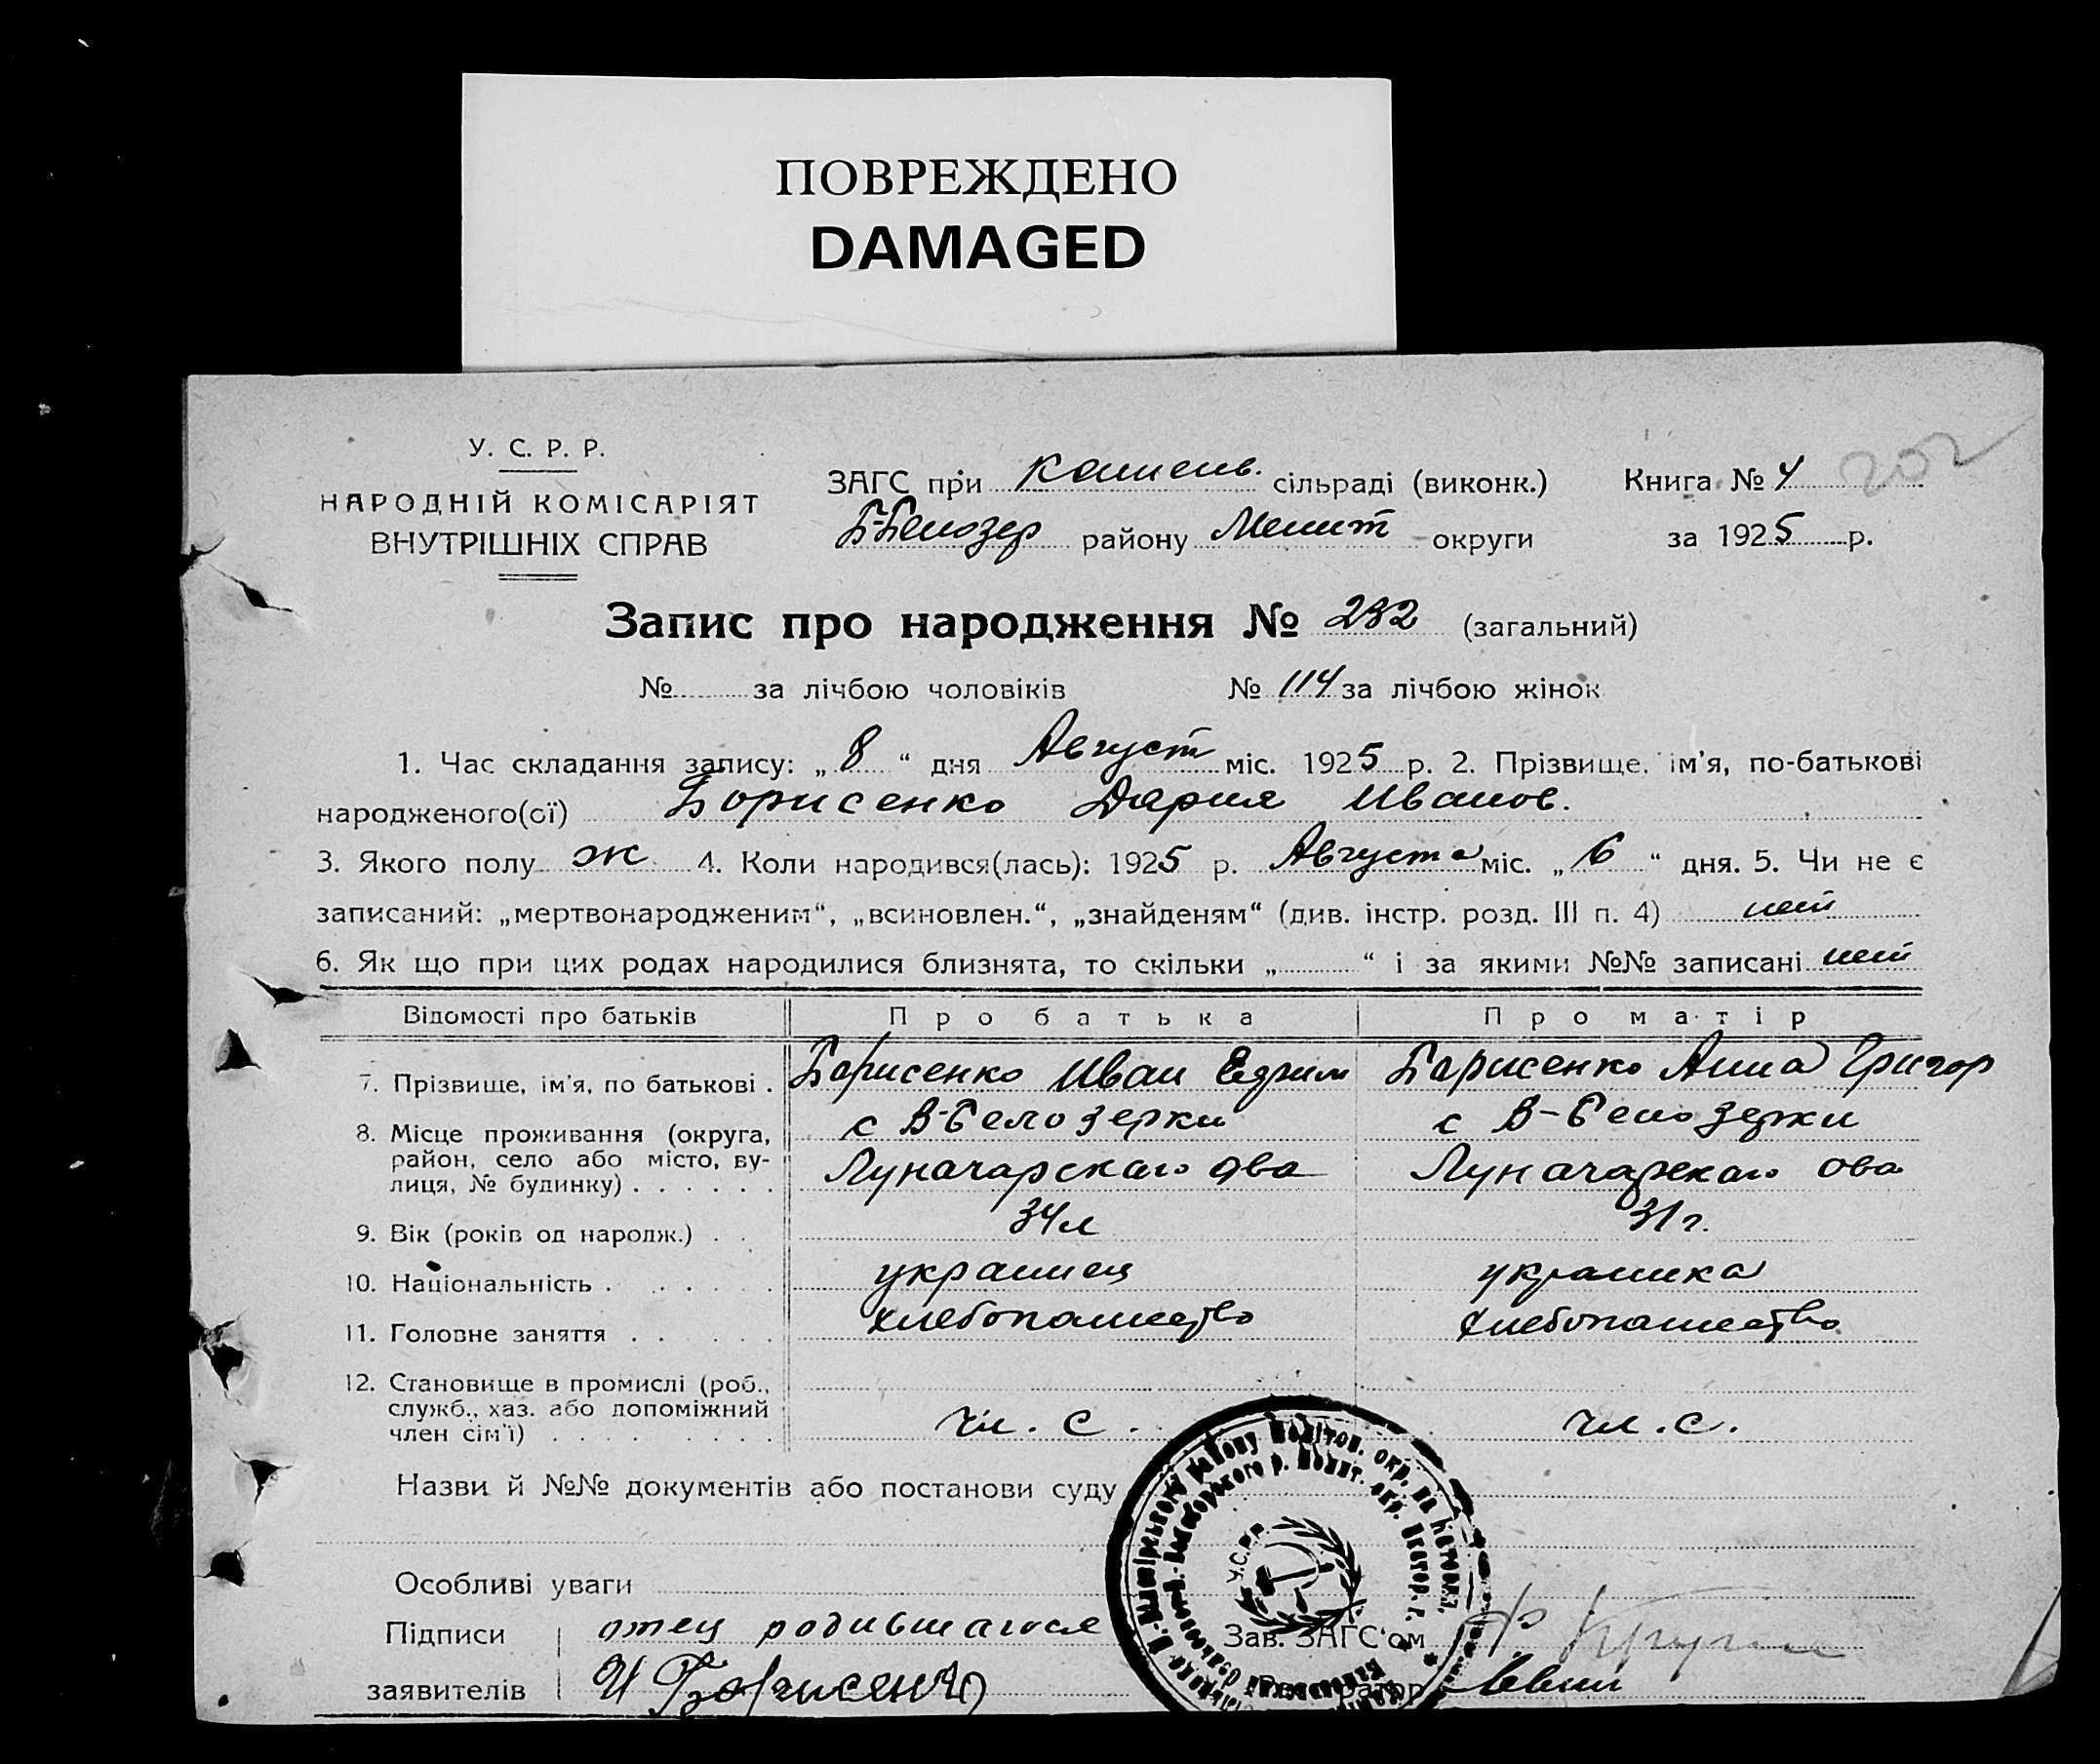 ПОВРЕЖДЕНО
DAMAGED
У. С. Р. Р.
НАРОДНІЙ КОМІСАРІЯТ
ВНУТРІШНІХ СПРАВ
ЗАГС при Каменв. сільраді (виконк.)
Б-Белозер району Мелит округи
Книга № 4 202
за 1925 р.
Запис про народження № 232 (загальний)
№ за лічбою чоловіків № 114 за лічбою жінок
1. Час складання запису: „ 8 “ дня Август міс. 1925 р. 2. Прізвище, ім'я, по-батькові
народженого(ої) Борисенко Дария Иванов.
3. Якого полу ж 4. Коли народився(лась): 1925 р. Августа міс. „ 6 “ дня. 5. Чи не є
записаний: „мертвонародженим“, „всиновлен.“, „знайденям“ (див. інстр. розд. III п. 4) нет
6. Як що при цих родах народилися близнята, то скільки „ “ і за якими №№ записані нет
Відомості про батьків Про батька Про матір
7. Прізвище, ім'я, по батькові . Борисенко Иван Ефрим Борисенко Анна Григор
8. Місце проживання (округа, с В-Белозерки с В-Белозерки
район, село або місто, ву-
лиця, № будинку) . . . . . . Луначарскаго ова Луначарскаго ова
9. Вік (років од народж.) . . 34 л 31 г.
10. Національність . . . . . . украинец украинка
11. Головне заняття . . . . . хлебопашество хлебопашество
12. Становище в промислі (роб.,
служб., хаз. або допоміжний
член сім'ї) . . . . . . . . чл. с. чл. с.
Назви й №№ документів або постанови суду
Особливі уваги
Підписи отец родившагося Зав. ЗАГС'ом
заявителів И Борисенко
У.С.Р.Р.